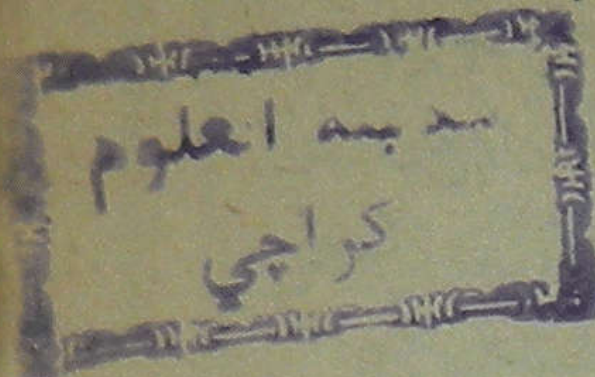 مدينة العلوم
كراچي